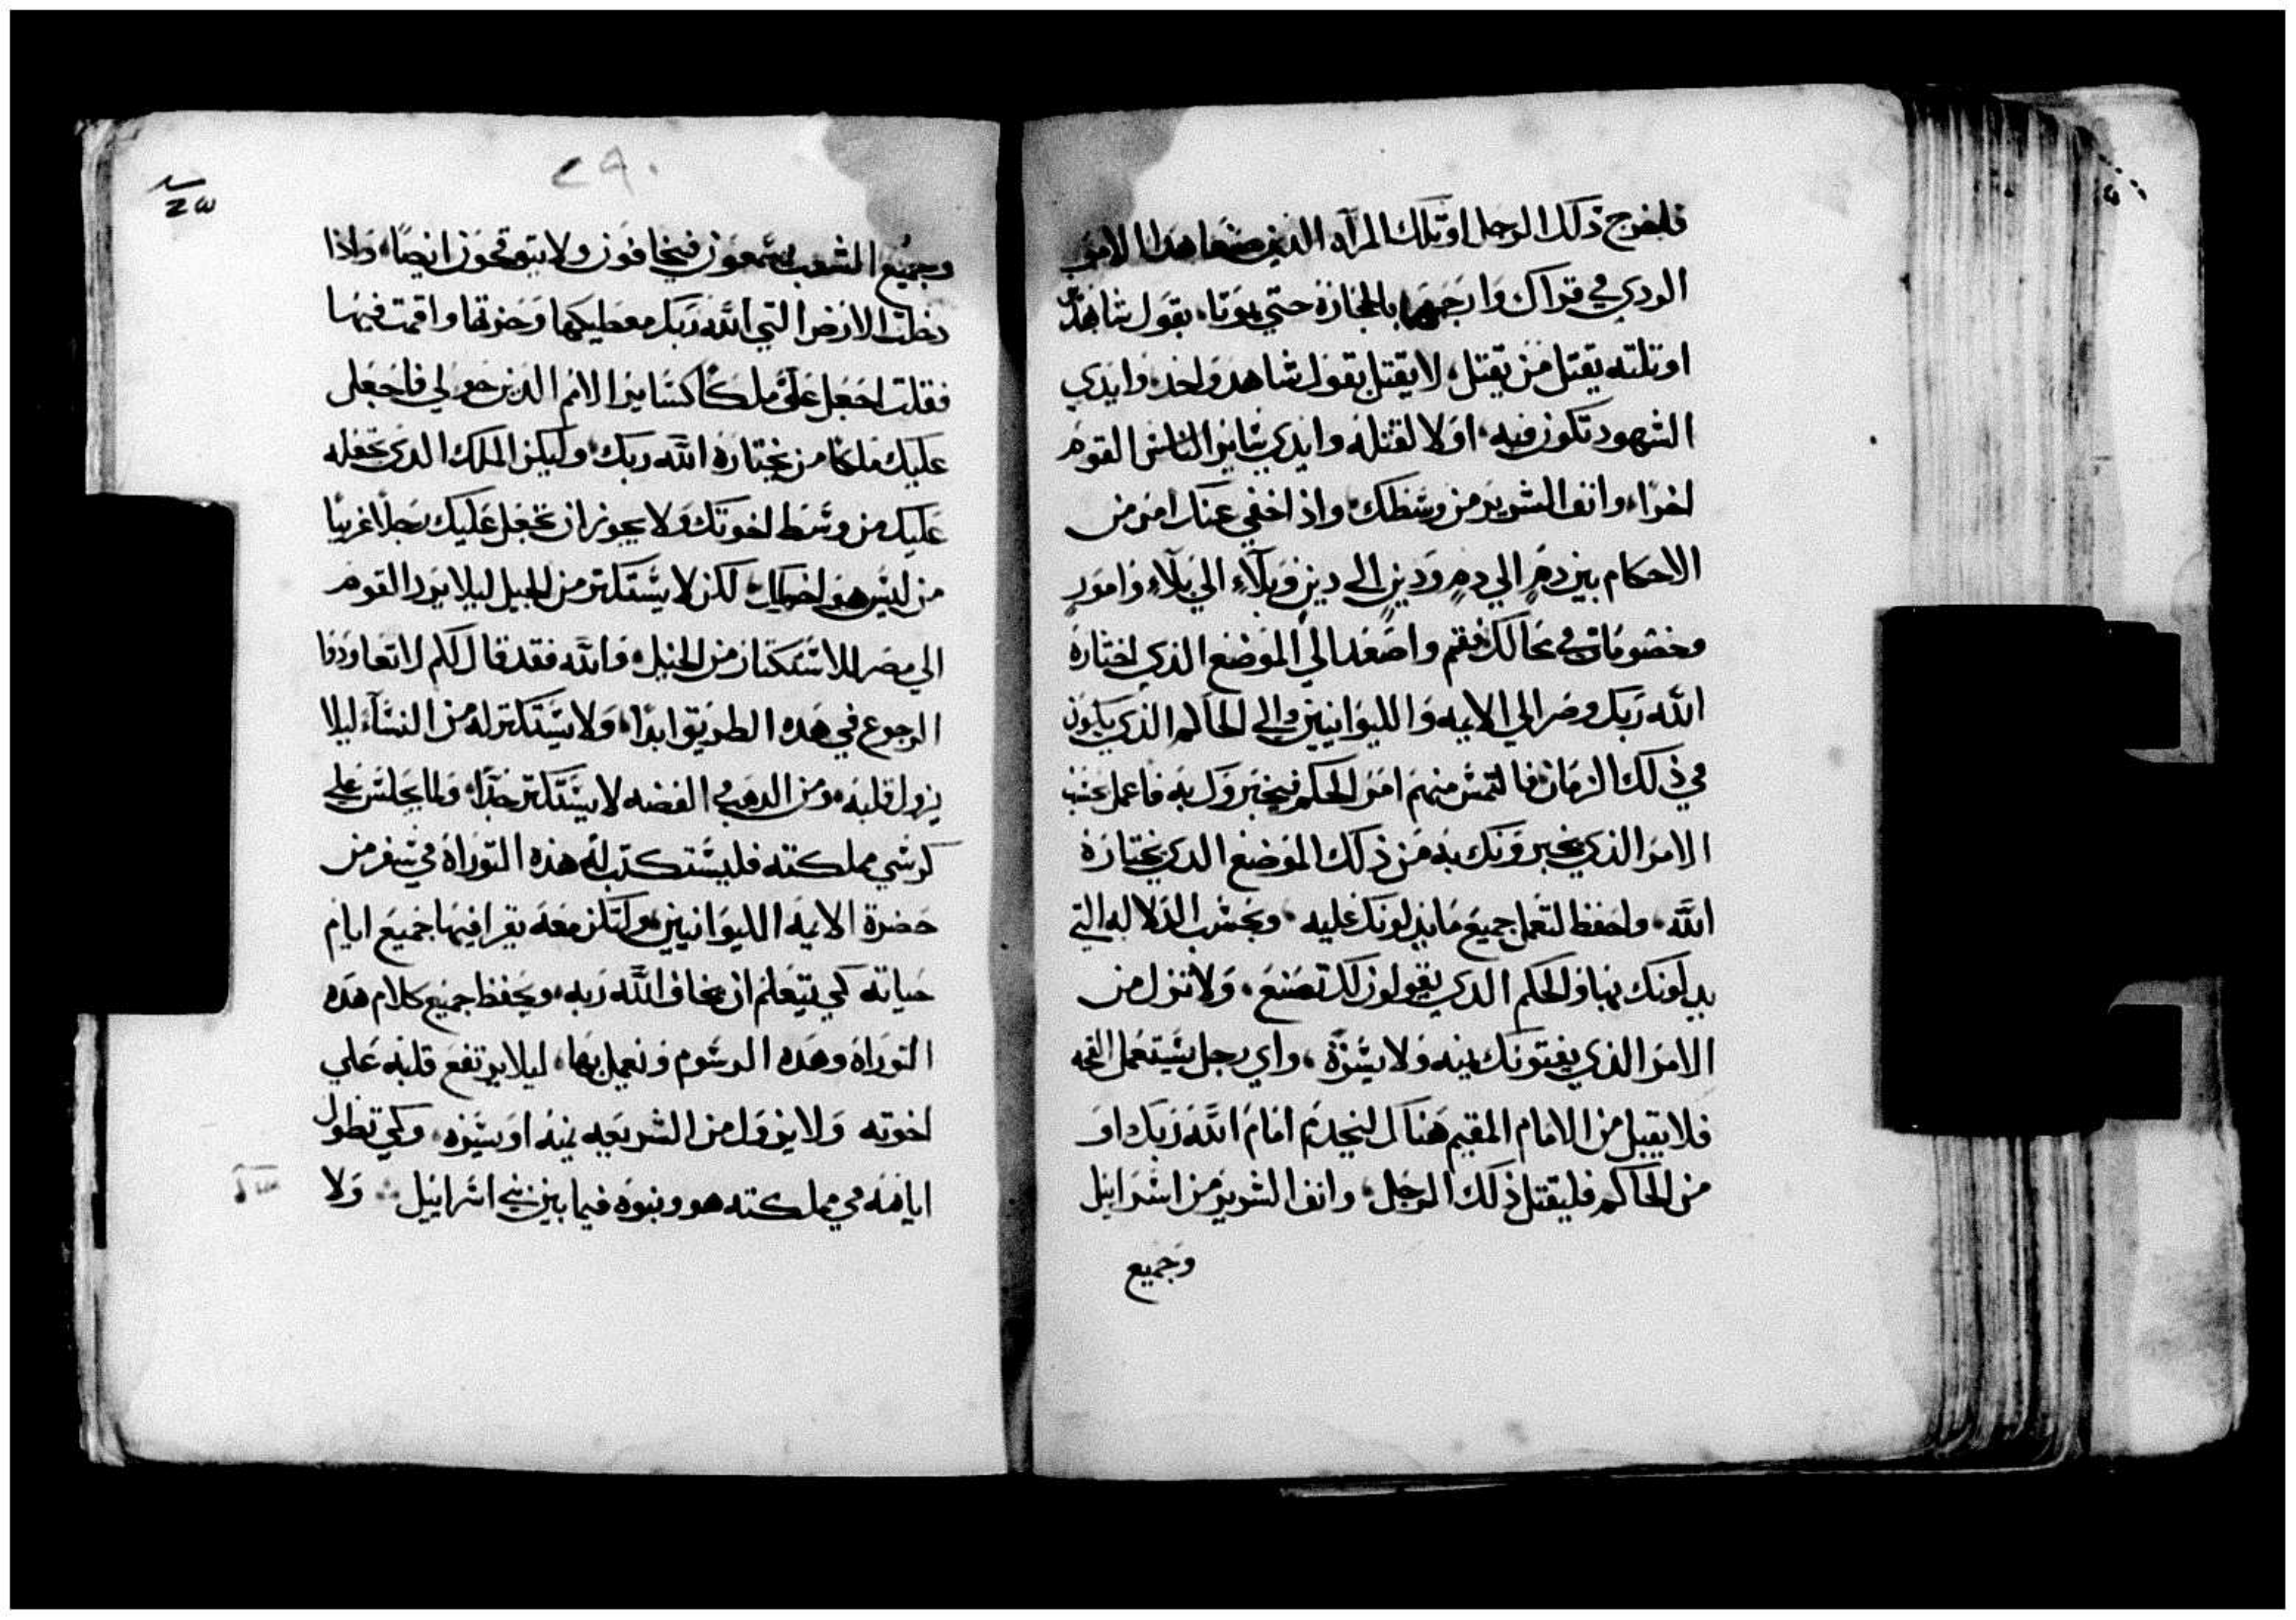 فليخرج ذلك الرجل او تلك المرآه الذين صنعا هذا الامر
الردي في قراك وارجمهما بالحجارة حتي يموتا، بقول شاهدين
او تلته يقتل من يقتل، لا يقتل بقول شاهد واحد، وايدي
الشهود تكون فيه، اولا لقتله وايدي سايرالناس القوم
اخرا، وانف الشرير من وسطك، واذ اخفي عنك امر من
الاحكام بين دمٍ الي دمٍ ودينٍ الى دينٍ وبلآءٍ الي بلآءٍ وامورٍ
وخصومات في محالك فقم واصعد الي الموضع الذي اختاره
الله ربك وصر الي الايمه والليوانيين والي الحاكم الذي يكون
في ذلك الزمان فالتمس منهم امر الحكم فيخبروك به فاعمل بحسب
الامر الذي يخبرونك به من ذلك الموضع الدي يختاره
الله، واحفظ لتعمل جميع ما يدلونك عليه، وبحسب الدلاله التي
يدلونك بها والحكم الدي يقولون لك تصنع، ولا تزل من
الامر الذي يفتونك يمنه ولا يسرة، واي رجل يستعمل القحه
فلا يقبل من الامام المقيم هناك ليخدم امام الله ربك او
من الحاكم فليقتل ذلك الرجل، وانف الشرير من اسرايل
وجميع
٢٩٠
وجميع الشعب يسمعون فيخافون ولا يتوقحون ايضًا، واذا
دخلت الارض التي الله ربك معطيكها وحزتها واقمت فيها
فقلت اجعل علي ملكًا كساير الامم الدين حولي فاجعل
عليك ملكا من يختاره الله ربك، وليكن الملك الدي تجعله
عليك من وسط اخوتك ولا يجوز ان تجعل عليك رجلا غريبًا
من ليس هو اخوك، لكن لا يستكتر من الخيل ليلا يرد القوم
الي مصر للاستكتار من الخيل، والله فقد قال لكم لا تعاودوا
الرجوع في هده الطريق ابدًا، ولا يستكتر له من النسآء ليلا
يزول قلبه، ومن الدهب و الفضه لا يستكتر جدًا، ولما يجلس علي
كرسي مملكته فليستكتب له هذه التوراة في سفر من
حضرة الايمه الليوانيين، ولتكن معه يقرا فيها جميع ايام
حياته كي يتعلم ان يخاف الله ربه، ويحفظ جميع كلام هده
التوراة وهده الرسوم ونعمل بها، ليلا يرتفع قلبه علي
اخوته ولا يزول من الشريعه يمنه او يسره، وكي تطول
ايامه في مملكته هو وبنوه فيما بين بني اسراييل ولا